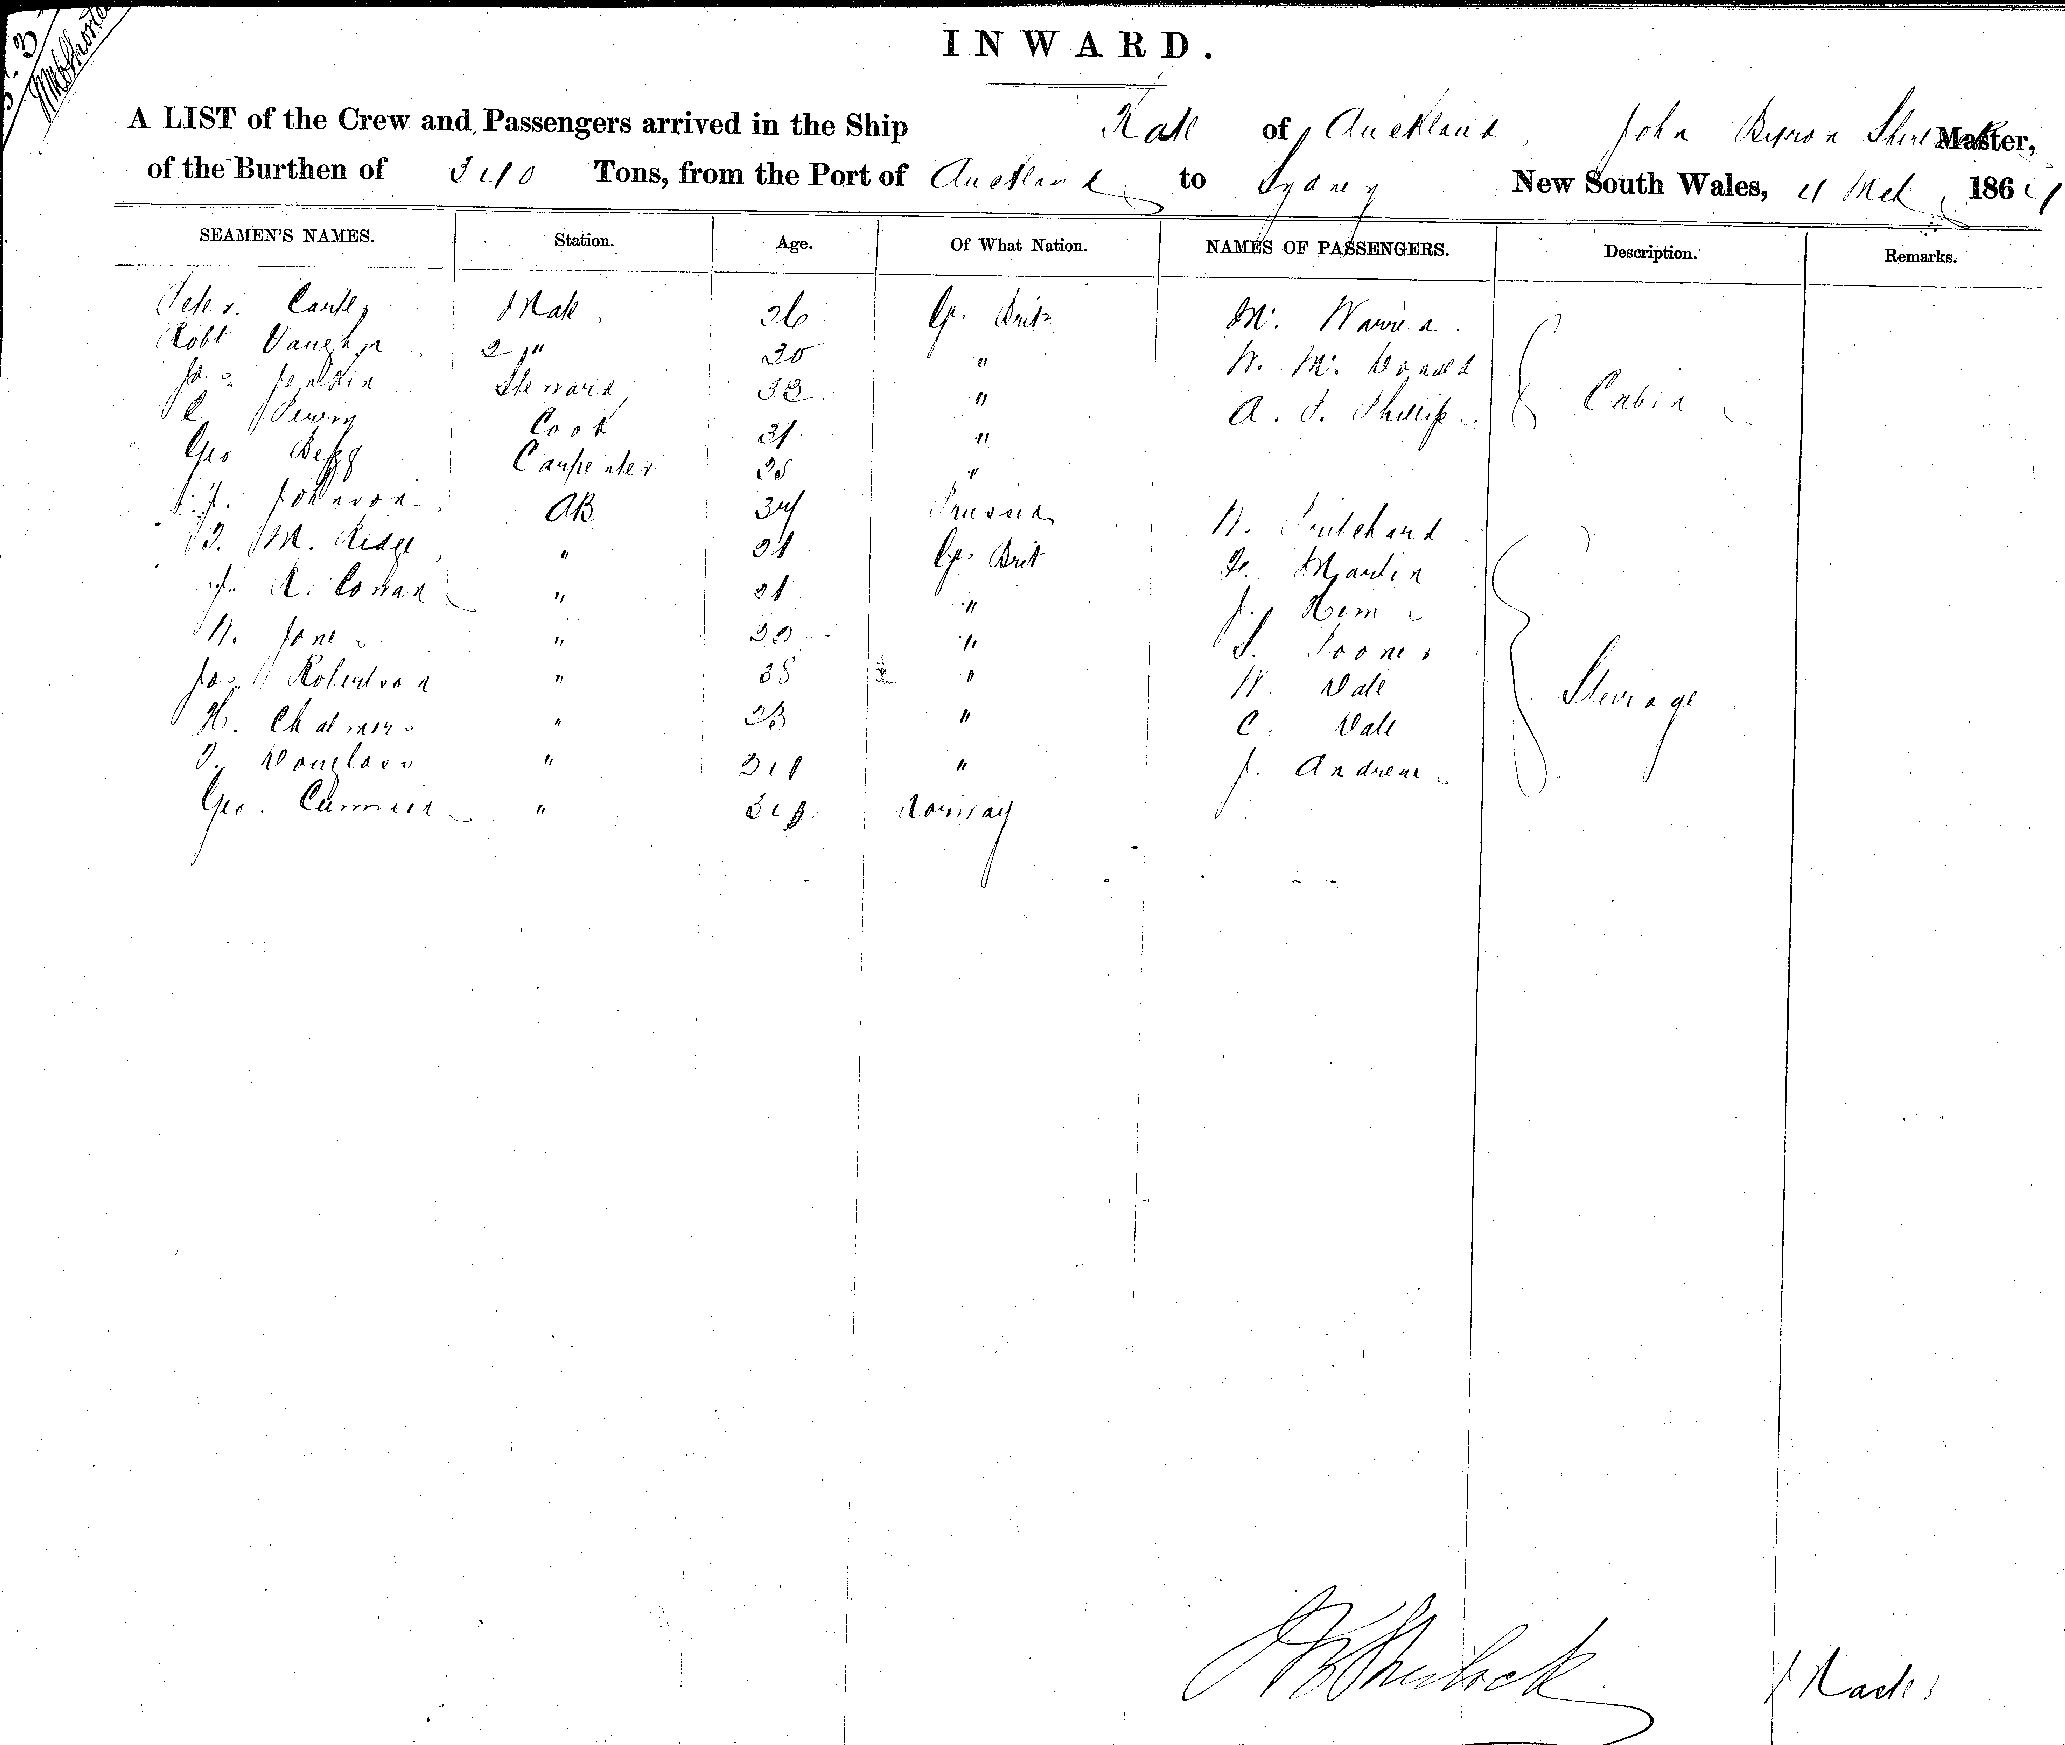 INWARD.
A LIST of the Crew and Passengers arrived in the Ship Kate of Auckland, John Byron Sherlock Master,
of the Burthen of 340 Tons, from the Port of Auckland to Sydney New South Wales, 4 Mch 1864
SEAMEN'S NAMES. Station. Age. Of What Nation. NAMES OF PASSENGERS. Description. Remarks.
Peter Mate 26 Gr. Brit Mr. Warren
Robt Vaughn 2 " 30 " W. Mc Donald Cabin
Jas Steward 33 " A. S. Phillips
Perry Cook 31 "
Geo Begg Carpenter "
Johnson AB 34 Prussia W. Pritchard
M. Ridge " 21 Gr. Brit Martin
J. R. Cowan " 21 " J.
W. Jones " " S.
Jas Robertson " 38 " W. Dale Steerage
H. Chalmers " 23 " C. Dale
Douglass " 24 " J. Andrews
Geo. " Norway
J B Sherlock Master